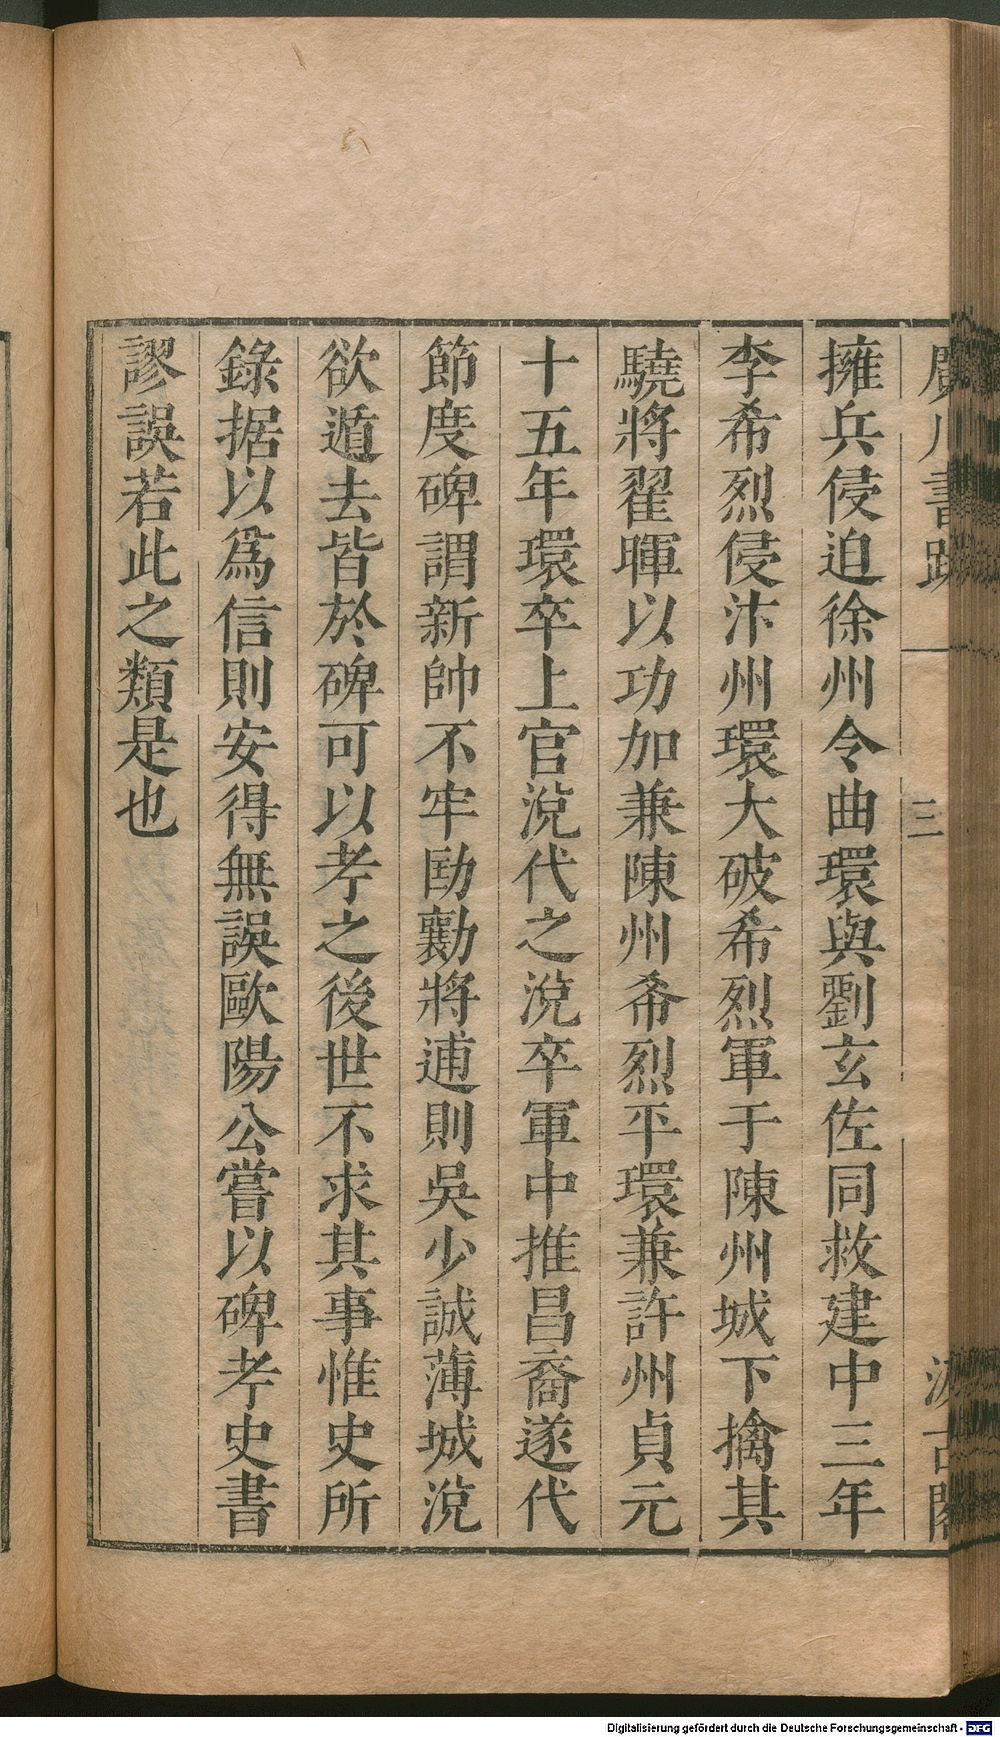 廣川書跋
三
汲古閣
擁兵侵迫徐州令曲環與劉玄佐同救建中三年
李希烈侵汴州環大破希烈軍于陳州城下擒其
驍將翟暉以功加兼陳州希烈平環兼許州貞元
十五年環卒上官涗代之涗卒軍中推昌裔遂代
節度碑謂新帥不牢劻勷將逋則吳少誠薄城涗
欲遁去皆於碑可以孝之後世不求其事惟史所
錄据以為信則安得無誤歐陽公嘗以碑孝史書
謬誤若此之類是也
Digitalisierung gefördert durch die Deutsche Forschungsgemeinschaft - DFG